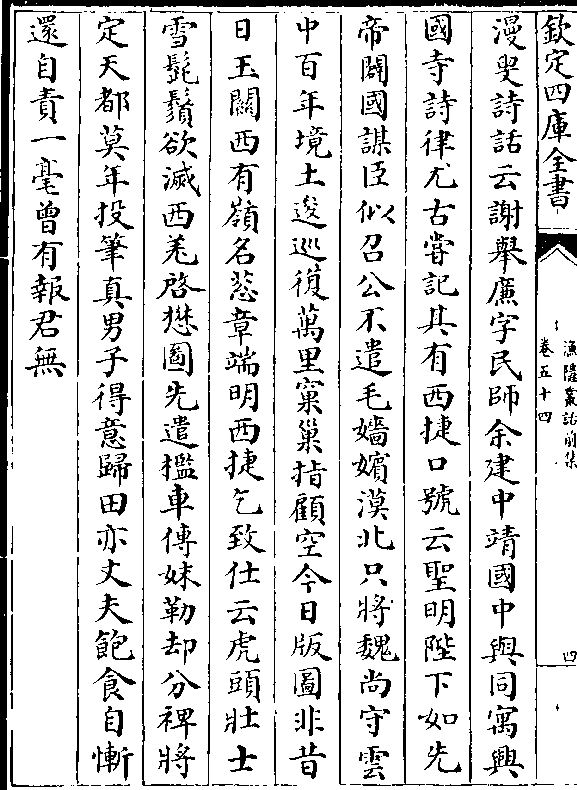 欽定四庫全書
漁隱叢話前集
卷五十四
四
漫叟詩話云謝舉廉字民師余建中靖國中與同寓興
國寺詩律尤古嘗記其有西捷口號云聖明陛下如先
帝闢國謀臣似召公不遣毛嬙嬪漠北只將魏尚守雲
中百年境土逡巡復萬里窠巢指顧空今日版圖非昔
日玉關西有嶺名葱章端明西捷乞致仕云虎頭壯士
雪髭鬚欲滅西羌啓懋圖先遣檻車傳妺勒却分裨將
定天都莫年投筆真男子得意歸田亦丈夫飽食自慚
還自責一毫曾有報君無